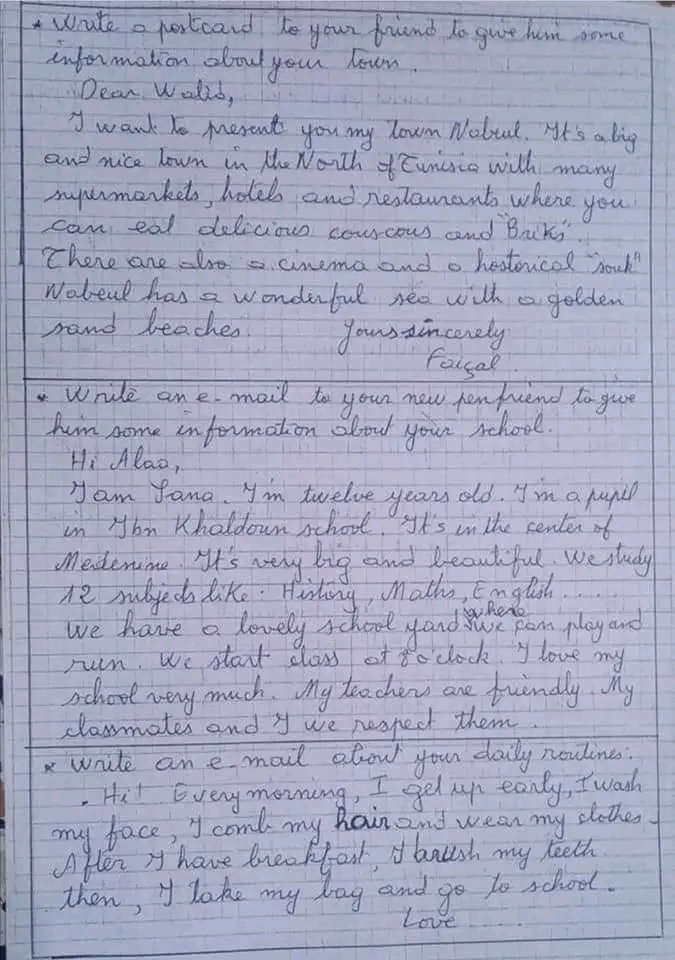 * Write a postcard to your friend to give him some
information about your town.
Dear Walid,
I want to present you my town Nabeul. It's a big
and nice town in the North of Tunisia with many
supermarkets, hotels and restaurants where you
can eat delicious couscous and "Briks".
There are also a cinema and a hostorical "souk"
Nabeul has a wonderful sea with a golden
sand beaches. Yours sincerely
Faiçal.
* Write an e-mail to your new penfriend to give
him some information about your school.
Hi Alaa,
I am Sana. I'm twelve years old. I'm a pupil
in Ibn Khaldoun school. It's in the center of
Medenine. It's very big and beautiful. We study
12 subjects like: History, Maths, English.....
where
We have a lovely school yard we can play and
run. We start class at 8 o'clock. I love my
school very much. My teachers are friendly. My
classmates and I we respect them.
* Write an e-mail about your daily routines.
. Hi! Every morning, I get up early, I wash
my face, I comb my hair and wear my clothes.
After I have breakfast, I brush my teeth
then, I take my bag and go to school.
Love ......